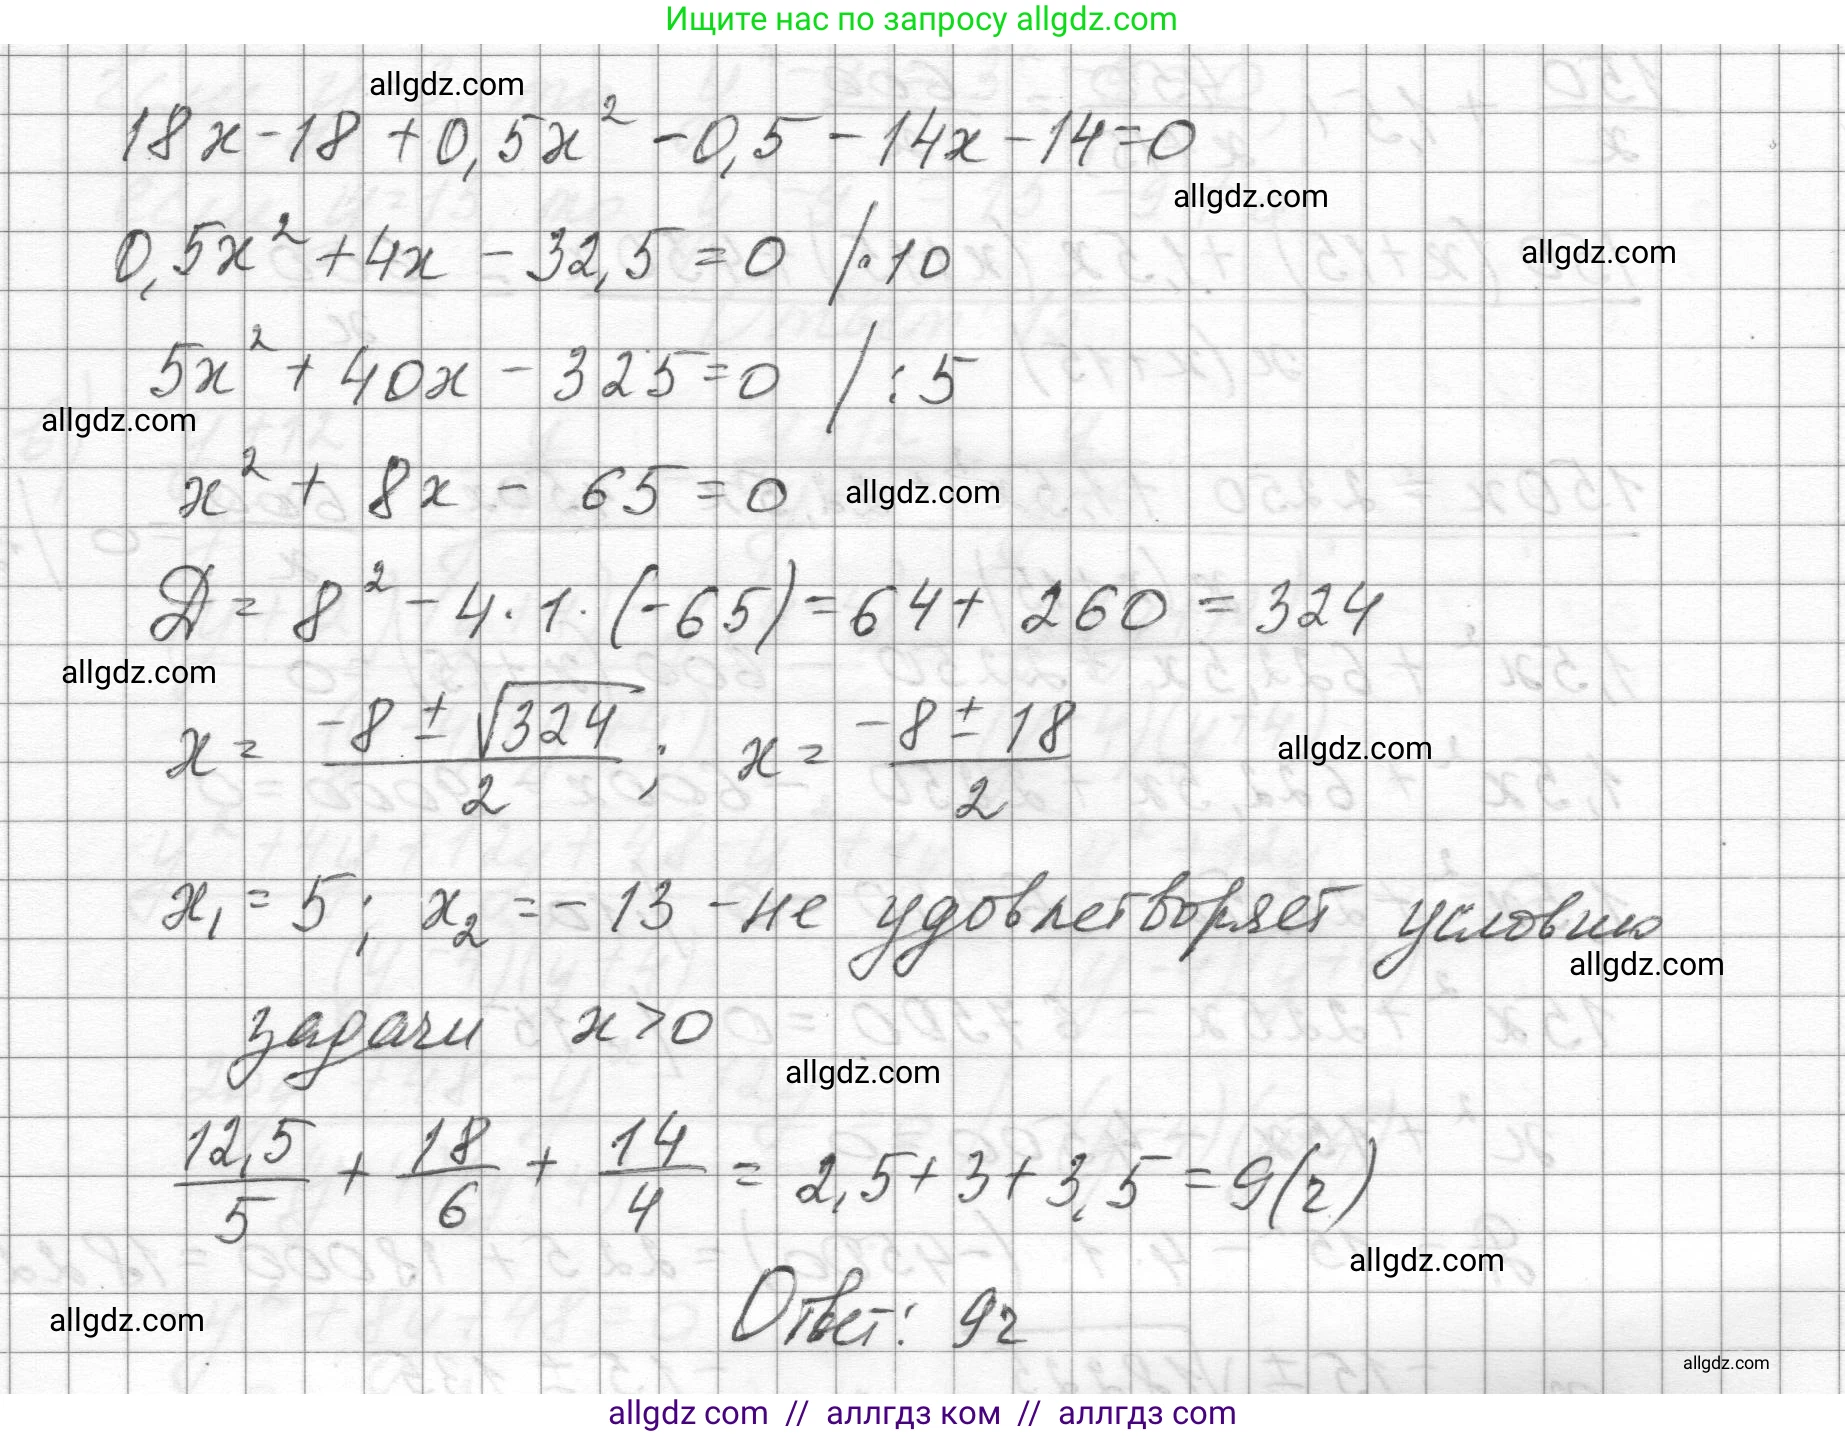 Ищите нас по запросу allgdz.com
allgdz.com
18x - 18 + 0,5x² - 0,5 - 14x - 14 = 0
allgdz.com
0,5x² + 4x - 32,5 = 0 /·10
allgdz.com
5x² + 40x - 325 = 0 /:5
allgdz.com
x² + 8x - 65 = 0
allgdz.com
Д = 8² - 4·1·(-65) = 64 + 260 = 324
allgdz.com
x = (-8 ± √324)/2; x = (-8 ± 18)/2
allgdz.com
x₁ = 5; x₂ = -13 - не удовлетворяет условию
allgdz.com
задачи x > 0
allgdz.com
12,5/5 + 18/6 + 14/4 = 2,5 + 3 + 3,5 = 9(ч)
allgdz.com
Ответ: 9ч
allgdz.com
allgdz.com
allgdz com // аллгдз ком // аллгдз com